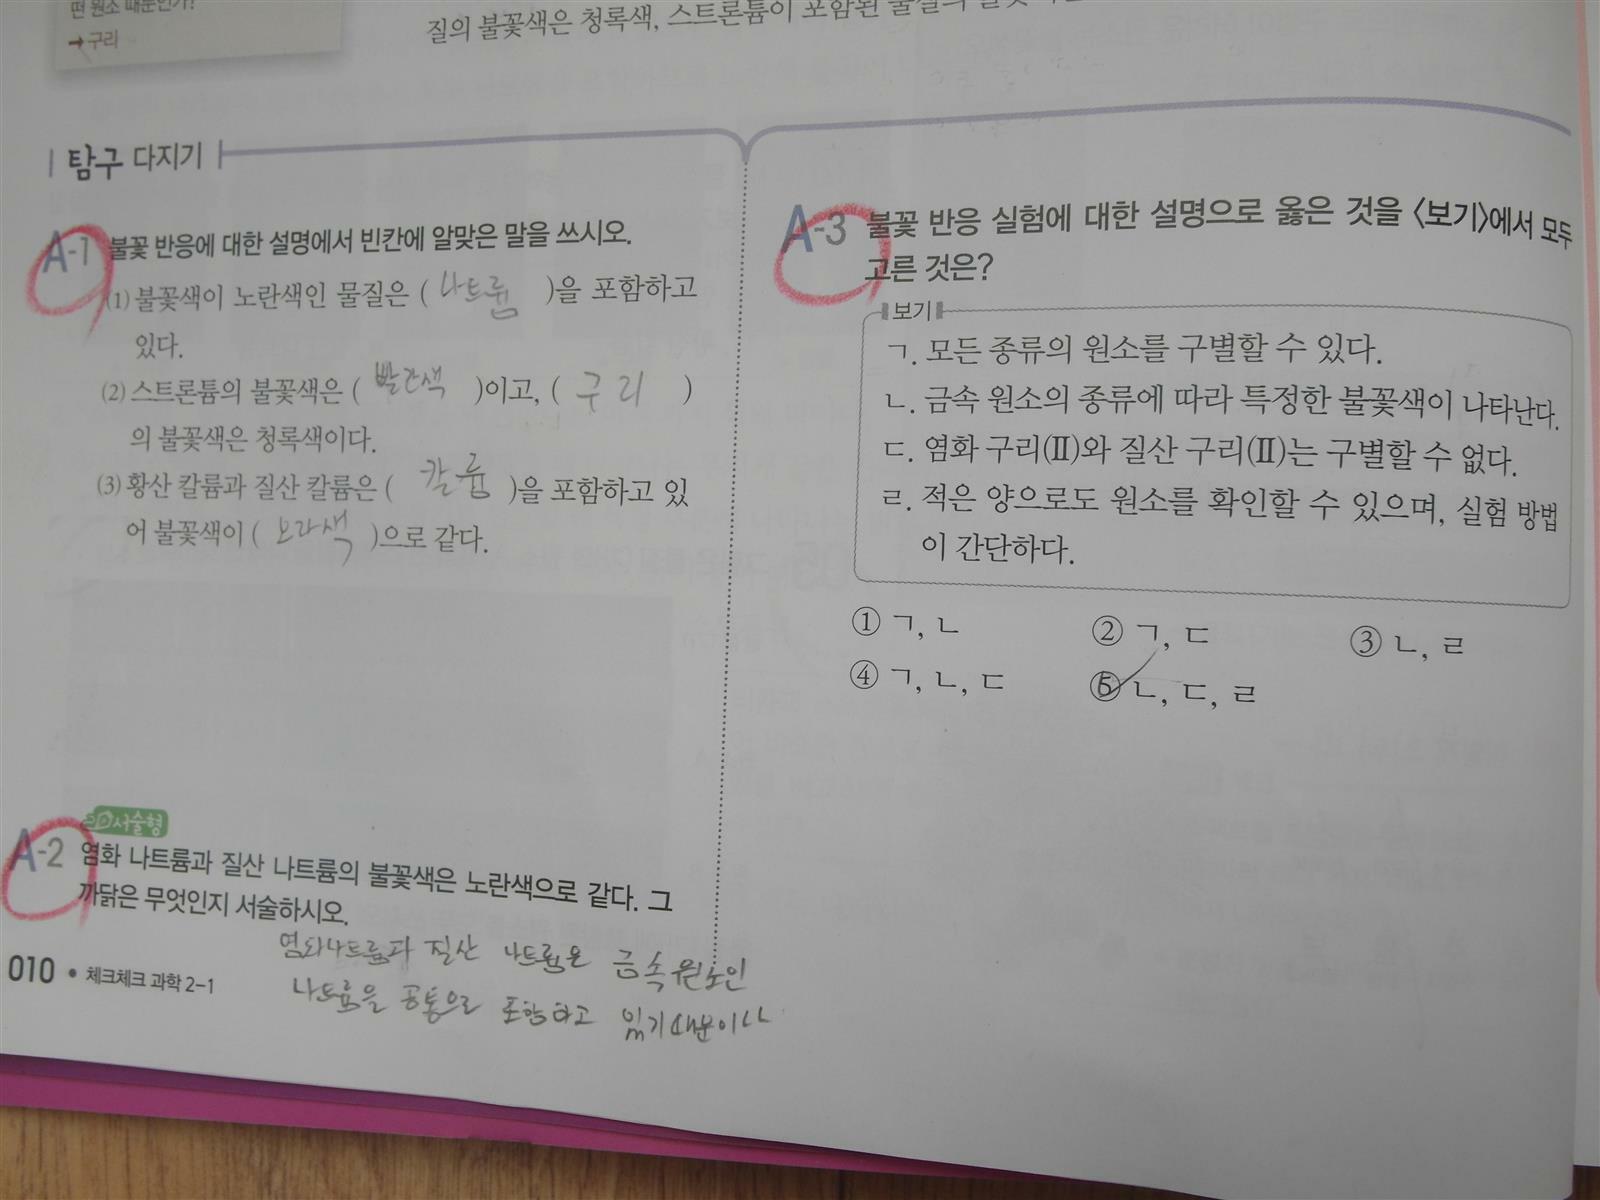 떤 원소 때문인가?
→ 구리
질의 불꽃색은 청록색, 스트론튬이 포함된 물질의
탐구 다지기
A-1 불꽃 반응에 대한 설명에서 빈칸에 알맞은 말을 쓰시오.
(1) 불꽃색이 노란색인 물질은 ( 나트륨 )을 포함하고
있다.
(2) 스트론튬의 불꽃색은 ( 빨간색 )이고, ( 구리 )
의 불꽃색은 청록색이다.
(3) 황산 칼륨과 질산 칼륨은 ( 칼륨 )을 포함하고 있
어 불꽃색이 ( 보라색 )으로 같다.
서술형
A-2 염화 나트륨과 질산 나트륨의 불꽃색은 노란색으로 같다. 그
까닭은 무엇인지 서술하시오.
염화나트륨과 질산 나트륨은 금속원소인
나트륨을 공통으로 포함하고 있기때문이다
010 • 체크체크 과학 2-1
A-3 불꽃 반응 실험에 대한 설명으로 옳은 것을 <보기>에서 모두
고른 것은?
보기
ㄱ. 모든 종류의 원소를 구별할 수 있다.
ㄴ. 금속 원소의 종류에 따라 특정한 불꽃색이 나타난다.
ㄷ. 염화 구리(Ⅱ)와 질산 구리(Ⅱ)는 구별할 수 없다.
ㄹ. 적은 양으로도 원소를 확인할 수 있으며, 실험 방법
이 간단하다.
① ㄱ, ㄴ ② ㄱ, ㄷ ③ ㄴ, ㄹ
④ ㄱ, ㄴ, ㄷ ⑤ ㄴ, ㄷ, ㄹ